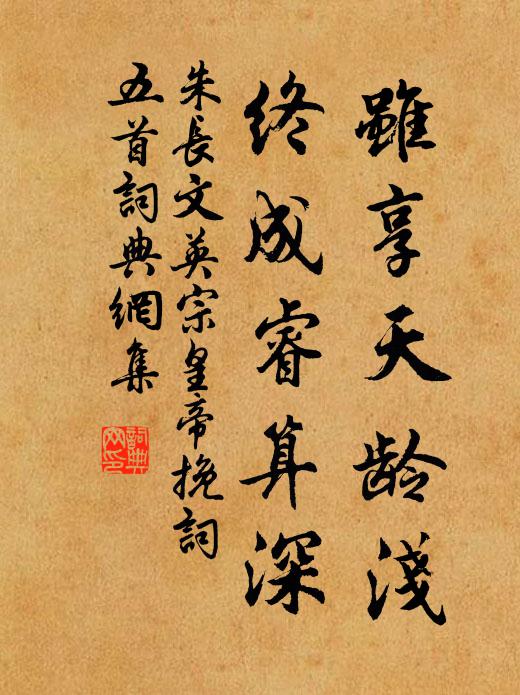 雖享天齡淺
終成睿算深
朱長文英宗皇帝挽詞
五首詞典網集
詞典
网印